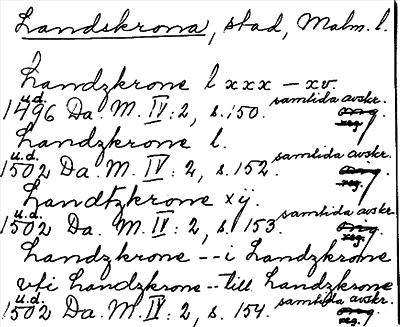 Landskrona, stad, Malm. l.
Landzkrone l xxx – xv.
u.d. samtida avskr.
1496 Da. M. IV: 2, s. 150. orig. reg.
Landzkrone l.
u.d. samtida avskr.
1502 Da. M. IV: 2, s. 152. orig. reg.
Landtzkrone xij.
u.d. samtida avskr.
1502 Da. M. IV: 2, s. 153. orig. reg.
Landzkrone -- i Landzkrone
vti Landzkrone -- till Landzkrone
u.d. samtida avskr.
1502 Da. M. IV: 2, s. 154. orig. reg.